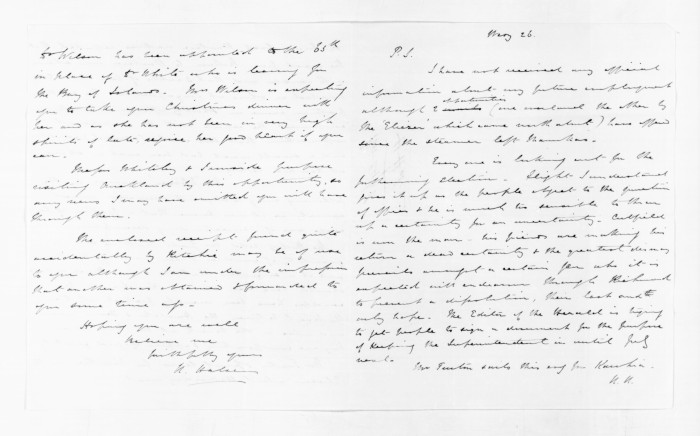 Dr Wilson has been appointed to the 65th
in place of Dr White who is leaving for
the Bay of Islands. Mrs Wilson is expecting
you to take your Christmas dinner with
her and as she has not been in very high
spirits of late, rejoice her good heart if you
can.
Messrs Whiteley & Turnside purpose
visiting Auckland by this opportunity, so
any news I may have omitted you will have
through them.
The enclosed receipt found quite
accidentally by Ritchie may be of use
to you although I am under the impression
that another was obtained & forwarded to
you some time ago.
Hoping you are well
Believe me
faithfully yours
H Halse
May 26.
P.S.
I have not received any official
information about my future employment
although 2 opportunities
(one overland the other by
the 'Eliezer' which came with about) have offered
since the steamer left Manukau.
Every one is looking out for the
forthcoming election. Sleight I understand
gives it up as the people object to the question
of officer & he is much too sensible to throw
up a certainty for an uncertainty. Cutfield
is now the man. his friends are making his
return a dead certainty & the greatest dismay
prevails amongst a certain few who it is
expected will endeavour through Richmond
to prevent a dissolution, their last and
only hope. The Editor of the Herald is trying
to get people to sign a document for the purpose
of keeping the Superintendent in until July
next.
Mr Fenton starts this day for Kawhia.
H. H.